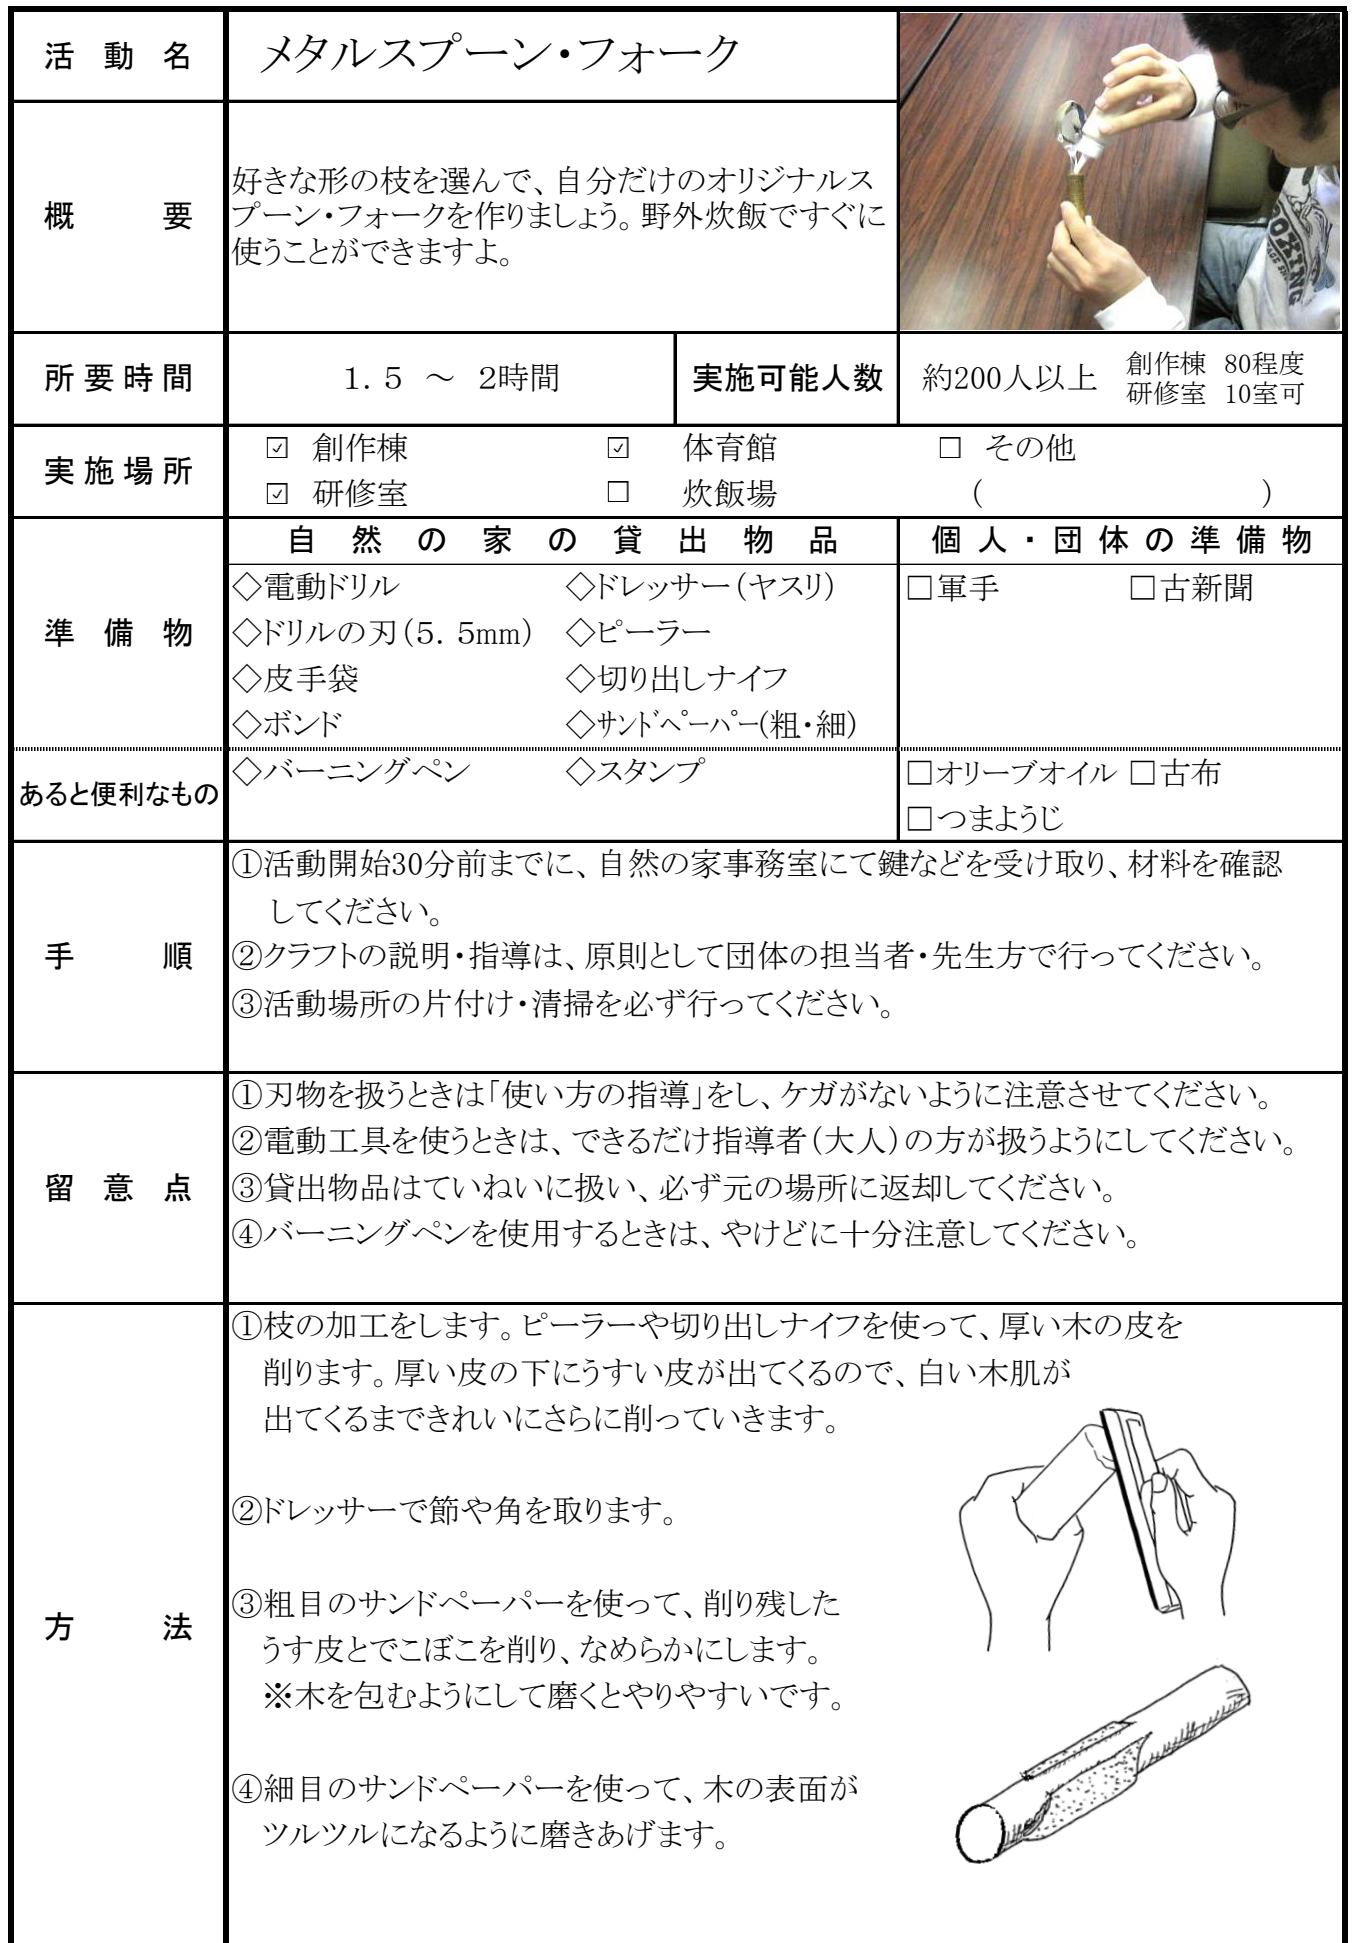 活 動 名
メタルスプーン・フォーク
概 要
好きな形の枝を選んで、自分だけのオリジナルス
プーン・フォークを作りましょう。野外炊飯ですぐに
使うことができますよ。
BOXING
所要時間
1．5 ～ 2時間
実施可能人数
約200人以上
創作棟 80程度
研修室 10室可
実施場所
☑ 創作棟 ☑ 体育館 □ その他
☑ 研修室 □ 炊飯場 （ ）
準 備 物
自然の家の貸出物品
個人・団体の準備物
◇電動ドリル ◇ドレッサー（ヤスリ） □軍手 □古新聞
◇ドリルの刃（5．5mm） ◇ピーラー
◇皮手袋 ◇切り出しナイフ
◇ボンド ◇ｻﾝﾄﾞﾍﾟｰﾊﾟｰ(粗・細)
あると便利なもの
◇バーニングペン ◇スタンプ □オリーブオイル □古布
□つまようじ
手 順
①活動開始30分前までに、自然の家事務室にて鍵などを受け取り、材料を確認
してください。
②クラフトの説明・指導は、原則として団体の担当者・先生方で行ってください。
③活動場所の片付け・清掃を必ず行ってください。
留 意 点
①刃物を扱うときは「使い方の指導」をし、ケガがないように注意させてください。
②電動工具を使うときは、できるだけ指導者（大人）の方が扱うようにしてください。
③貸出物品はていねいに扱い、必ず元の場所に返却してください。
④バーニングペンを使用するときは、やけどに十分注意してください。
方 法
①枝の加工をします。ピーラーや切り出しナイフを使って、厚い木の皮を
削ります。厚い皮の下にうすい皮が出てくるので、白い木肌が
出てくるまできれいにさらに削っていきます。
②ドレッサーで節や角を取ります。
③粗目のサンドペーパーを使って、削り残した
うす皮とでこぼこを削り、なめらかにします。
※木を包むようにして磨くとやりやすいです。
④細目のサンドペーパーを使って、木の表面が
ツルツルになるように磨きあげます。